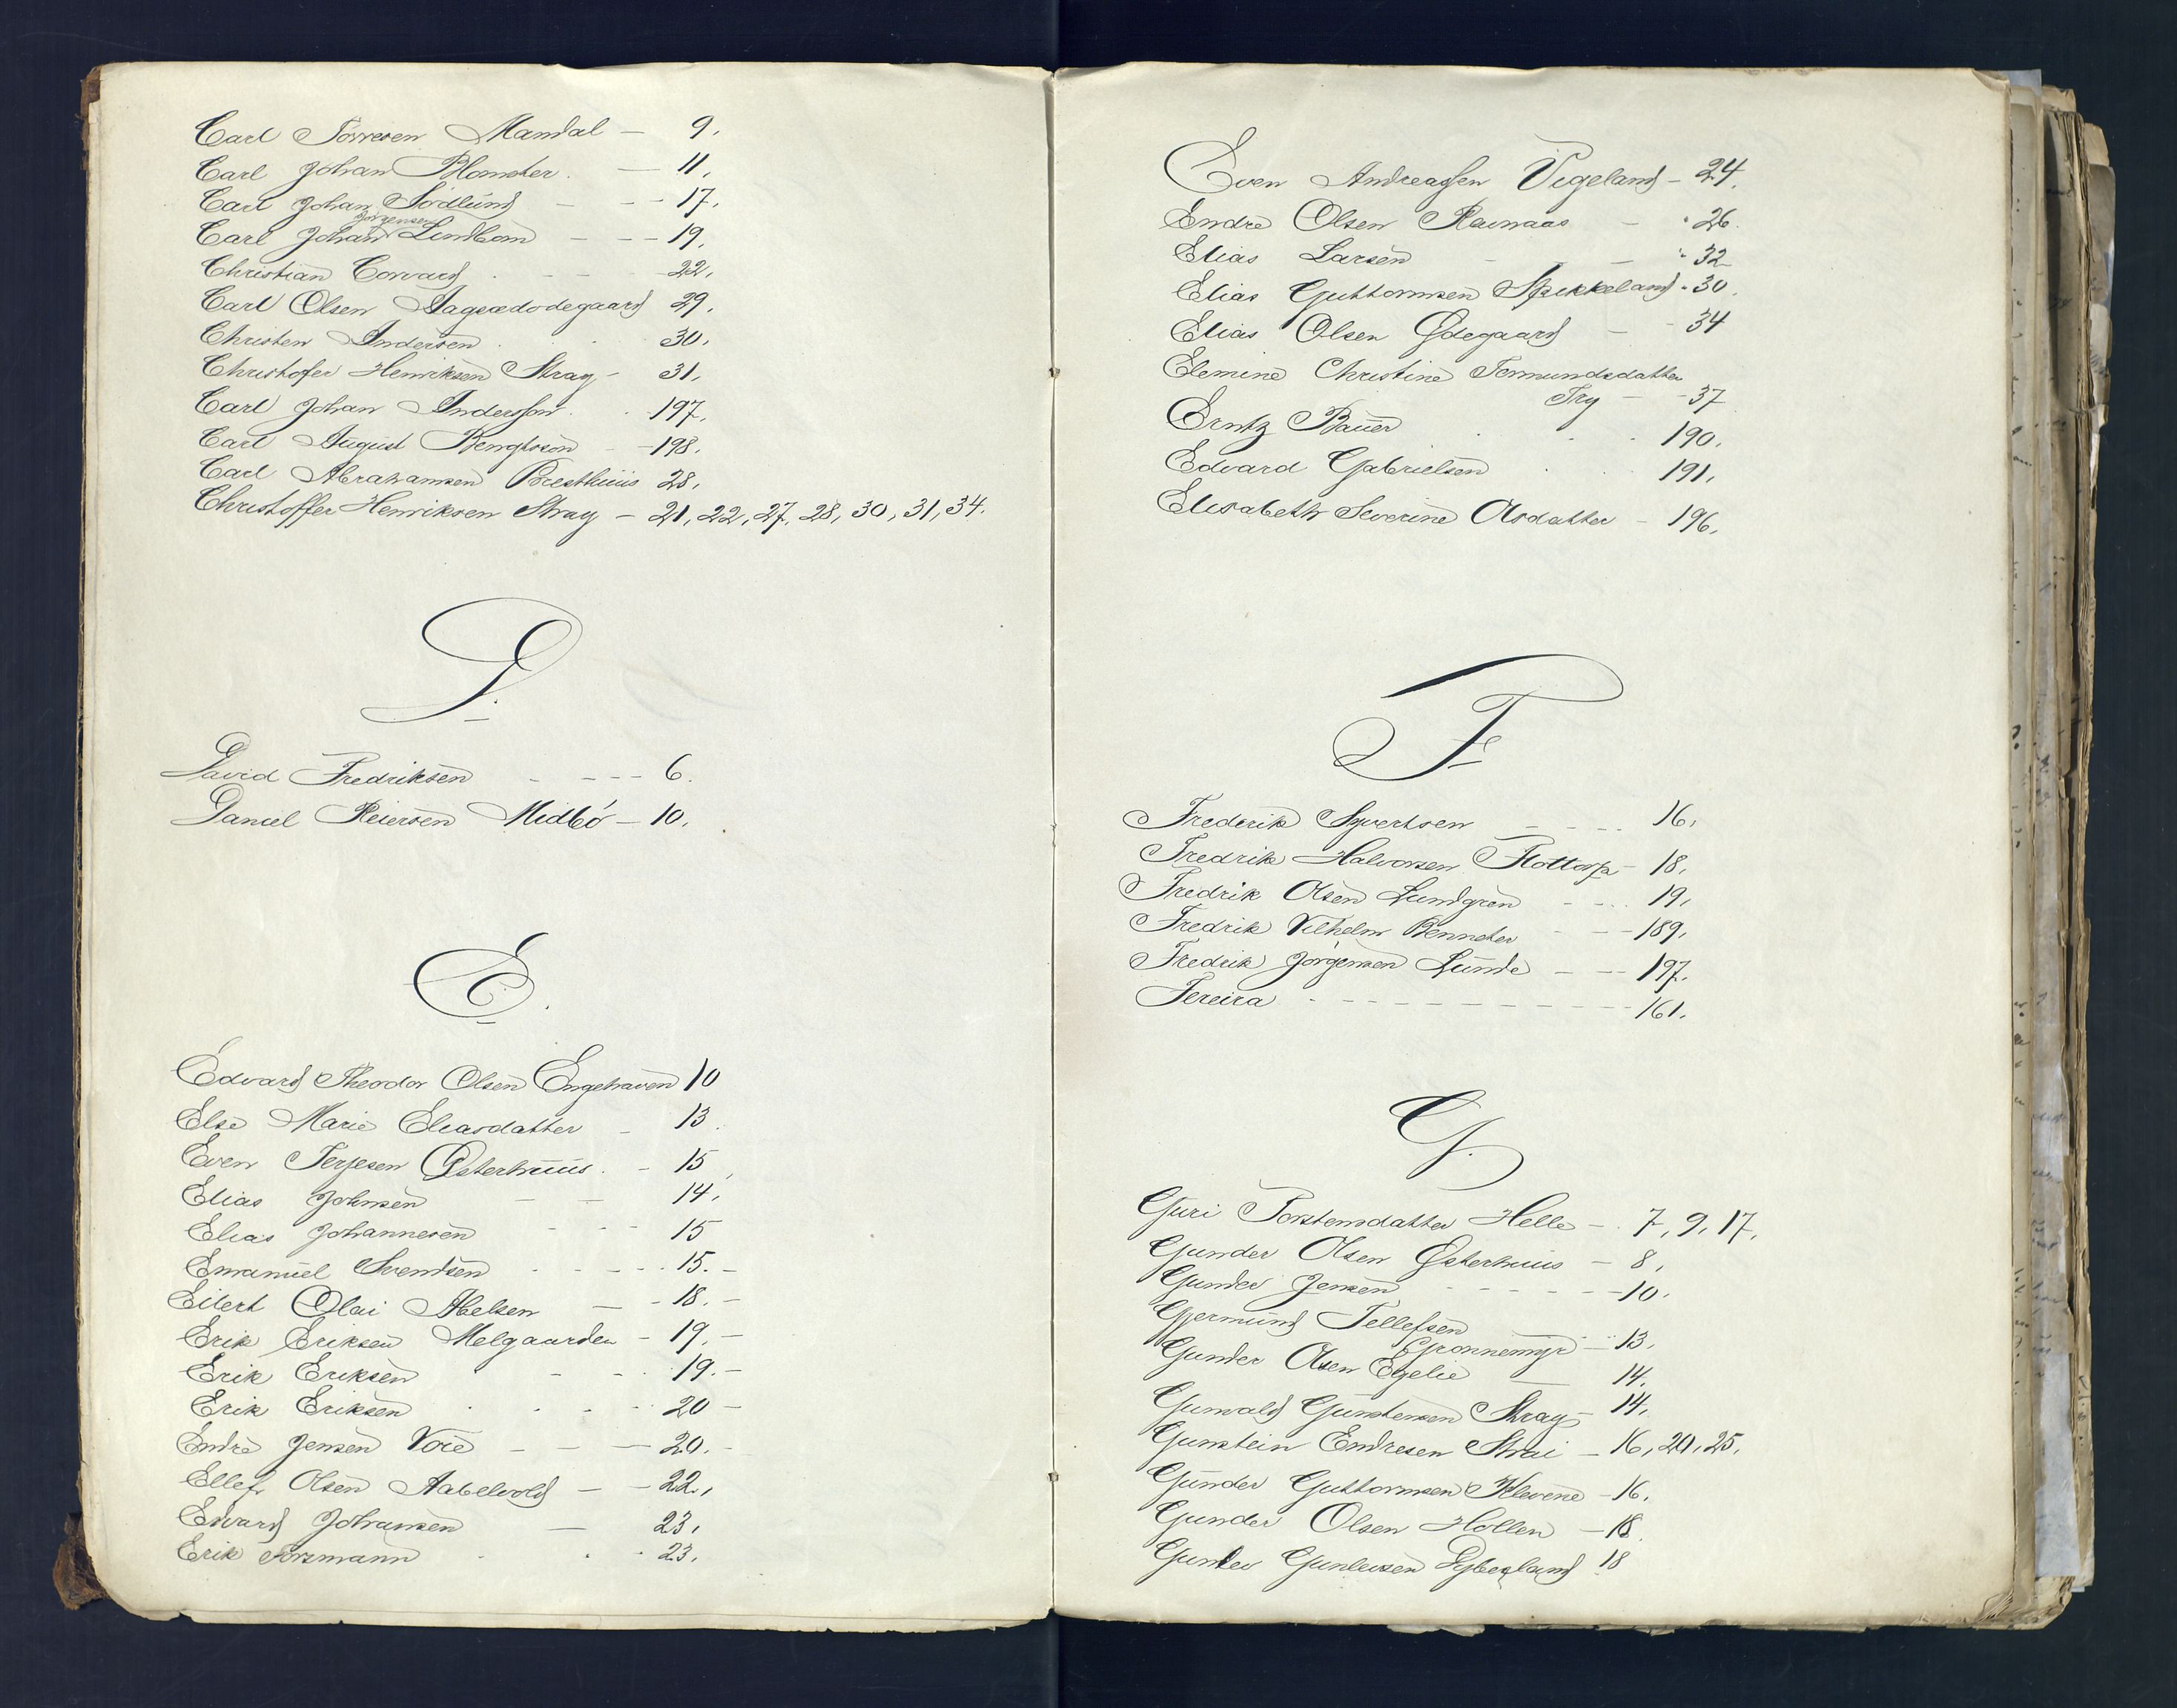 Carl Torresen Mandal — 9.
Carl Johan Blomster. — 11.
Carl Johan Södlund - - - 17.
Jörgensen
Carl Johan Lindbom - - - 19.
Christian Corvard . - - 22.
Carl Olsen Aagsædodegaard 29.
Christen Andersen . . 30.
Christofer Henriksen Stray - 31.
Carl Johan Anderson . . 197.
Carl August Bengtson - 198.
Carl Abrahamsen Presthuus 28.
Christoffer Henriksen Stray - 21, 22, 27, 28, 30, 31, 34.
D.
David Fredriksen - - - - 6.
Daniel Reiersen Midbö - 10.
E.
Edvard Theodor Olsen Engehaven 10
Else Marie Eliasdatter - 13.
Even Terjesen Østerhuus. - 15,
Elias Johnsen - - 14.
Elias Johannesen - - - 15
Emanuel Svendsen - - - - 15. -
Eilert Olai Abelsen — - 18. -
Erik Eriksen Melgaarden - 19. -
Erik Eriksen - - - 19. -
Erik Eriksen . - - - 20 -
Endre Jensen Vore - - — 20. -
Ellef Olsen Aabelvold — - 22.,
Edvard Johansen — 23.
Erik Forsmann . . . 23.
Even Andreassen Vigeland - 24.
Endre Olsen Ravnaas - " 26.
Elias Larsen - - - " 32
Elias Guttormsen Stækkeland - 30.
Elias Olsen Ødegaard - - 34
Elemine Christine Tormundsdatter
Try - - 37
Erntz Bauer . . . 190.
Edvard Gabrielsen . . 191.
Elisabeth Severine Olsdatter - 196.
F.
Frederik Syvertsen - - - - 16.
Fredrik Halvorsen Flottorp - 18.
Fredrik Olsen Lundgren - - - 19.
Fredrik Vilhelm Benneter - - - 189.
Fredrik Jörgensen Lunde - - - 197.
Fereira - - - - - - - - - - 161.
G.
Guri Torstensdatter Helle - . 7, 9, 17.
Gunder Olsen Østerhuus - 8,
Gunder Jensen - - - - - - 10.
Gjermund Tellefsen
Grønnemyr - 13.
Gunder Olsen Egelie — 14.
Gunvald Gunstensen Stray - 14.
Gunstein Endresen Strai - 16, 20, 25.
Gunder Guttormsen Klevene - 16.
Gunder Olsen Hollen - 18.
Gunder Gunleusen Dybesland 18